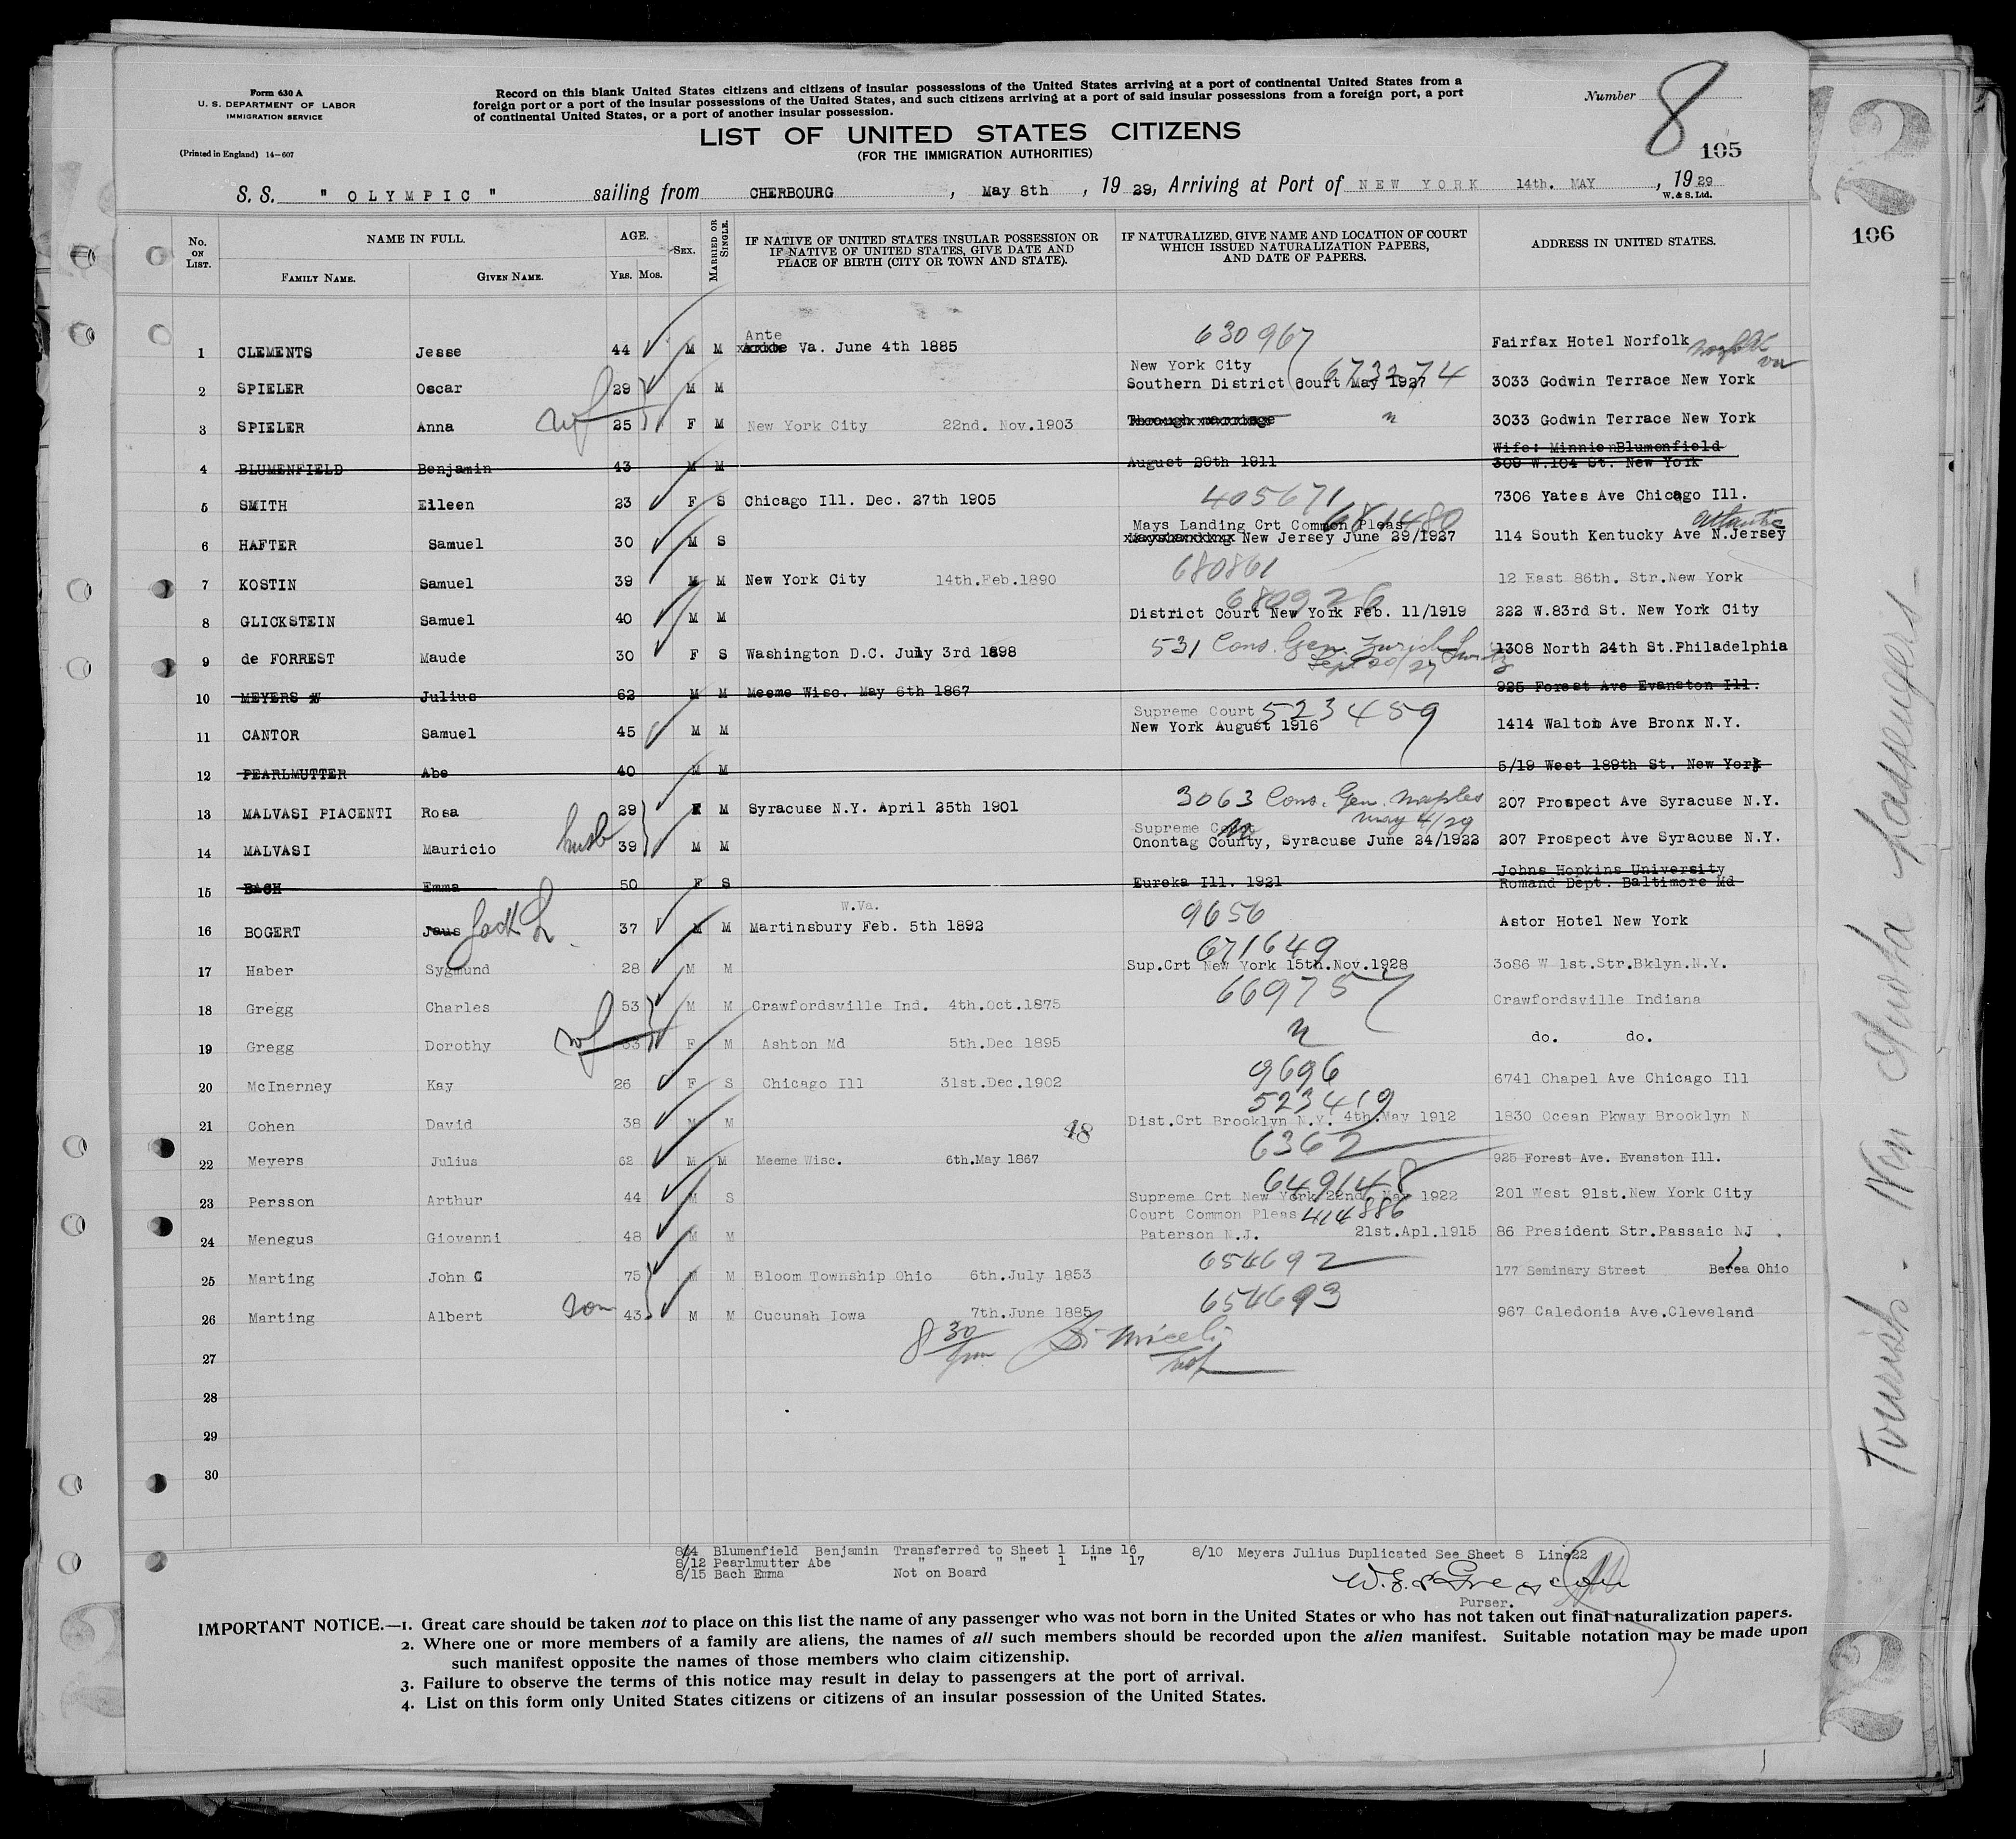 Form 630 A
U. S. DEPARTMENT OF LABOR
IMMIGRATION SERVICE
(Printed in England) 14—607
Record on this blank United States citizens and citizens of insular possessions of the United States arriving at a port of continental United States from a
foreign port or a port of the insular possessions of the United States, and such citizens arriving at a port of said insular possessions from a foreign port, a port
of continental United States, or a port of another insular possession.
LIST OF UNITED STATES CITIZENS
(FOR THE IMMIGRATION AUTHORITIES)
Number 8
105
106
S. S. " OLYMPIC " sailing from CHERBOURG , May 8th , 19 29, Arriving at Port of NEW YORK 14th. MAY , 19 29
W. & S. Ltd.
No. ON LIST. NAME IN FULL. AGE. SEX. MARRIED OR SINGLE. IF NATIVE OF UNITED STATES INSULAR POSSESSION OR IF NATIVE OF UNITED STATES, GIVE DATE AND PLACE OF BIRTH (CITY OR TOWN AND STATE). IF NATURALIZED, GIVE NAME AND LOCATION OF COURT WHICH ISSUED NATURALIZATION PAPERS, AND DATE OF PAPERS. ADDRESS IN UNITED STATES.
FAMILY NAME. GIVEN NAME. YRS. MOS.
Ante 630967
1 CLEMENTS Jesse 44 M M Va. June 4th 1885 Fairfax Hotel Norfolk Norfolk Va
New York City 673274
2 SPIELER Oscar 29 M M Southern District Court May 1927 3033 Godwin Terrace New York
3 SPIELER Anna wf 25 F M New York City 22nd. Nov.1903 Through marriage n 3033 Godwin Terrace New York
Wife: Minnie Blumenfield
4 BLUMENFIELD Benjamin 43 M M August 29th 1911 309 W.104 St. New York
5 SMITH Eileen 23 F S Chicago Ill. Dec. 27th 1905 405671 7306 Yates Ave Chicago Ill.
Mays Landing Crt Common Pleas 681480 Atlantic
6 HAFTER Samuel 30 M S New Jersey June 29/1927 114 South Kentucky Ave N.Jersey
7 KOSTIN Samuel 39 M M New York City 14th.Feb.1890 680861 12 East 86th. Str.New York
680926
8 GLICKSTEIN Samuel 40 M M District Court New York Feb. 11/1919 222 W.83rd St. New York City
9 de FORREST Maude 30 F S Washington D.C. July 3rd 1898 531 Cons. Gen. Zurich Sept 20/27 1308 North 24th St.Philadelphia
10 MEYERS Julius 62 M M Meeme Wisc. May 6th 1867 925 Forest Ave Evanston Ill.
Supreme Court 523459
11 CANTOR Samuel 45 M M New York August 1916 1414 Walton Ave Bronx N.Y.
12 PEARLMUTTER Abe 40 M M 5/19 West 189th St. New York
13 MALVASI PIACENTI Rosa 29 F M Syracuse N.Y. April 25th 1901 3063 Cons. Gen. Naples May 4/29 207 Prospect Ave Syracuse N.Y.
Supreme Court
14 MALVASI Mauricio husb 39 M M Onontag County, Syracuse June 24/1922 207 Prospect Ave Syracuse N.Y.
Johns Hopkins University
15 BACH Emma 50 F S Eureka Ill. 1921 Romand Dept. Baltimore Md
W.Va.
16 BOGERT Jaus Jack 37 M M Martinsbury Feb. 5th 1892 9656 Astor Hotel New York
671649
17 Haber Sygmund 28 M M Sup.Crt New York 15th.Nov.1928 3o86 W 1st.Str.Bklyn.N.Y.
18 Gregg Charles 53 M M Crawfordsville Ind. 4th.Oct.1875 669757 Crawfordsville Indiana
19 Gregg Dorothy wf 33 F M Ashton Md 5th.Dec 1895 n do. do.
20 McInerney Kay 26 F S Chicago Ill 31st.Dec.1902 9696 6741 Chapel Ave Chicago Ill
523419
21 Cohen David 38 M M Dist.Crt Brooklyn N.Y. 4th.May 1912 1830 Ocean Pkway Brooklyn N
48
22 Meyers Julius 62 M M Meeme Wisc. 6th.May 1867 6362 925 Forest Ave. Evanston Ill.
649148
23 Persson Arthur 44 M S Supreme Crt New York 22nd May 1922 201 West 91st.New York City
Court Common Pleas 414886
24 Menegus Giovanni 48 M M Paterson N.J. 21st.Apl.1915 86 President Str.Passaic NJ
25 Marting John C 75 M M Bloom Township Ohio 6th.July 1853 654692 177 Seminary Street Berea Ohio
26 Marting Albert son 43 M M Cucunah Iowa 7th.June 1885 654693 967 Caledonia Ave.Cleveland
8 30 pm Miceli
27
28
29
30
8/4 Blumenfield Benjamin Transferred to Sheet 1 Line 16 8/10 Meyers Julius Duplicated See Sheet 8 Line22
8/12 Pearlmutter Abe " " " 1 " 17
8/15 Bach Emma Not on Board
Purser.
IMPORTANT NOTICE.—1. Great care should be taken not to place on this list the name of any passenger who was not born in the United States or who has not taken out final naturalization papers.
2. Where one or more members of a family are aliens, the names of all such members should be recorded upon the alien manifest. Suitable notation may be made upon
such manifest opposite the names of those members who claim citizenship.
3. Failure to observe the terms of this notice may result in delay to passengers at the port of arrival.
4. List on this form only United States citizens or citizens of an insular possession of the United States.
Tourist. Non Quota passengers